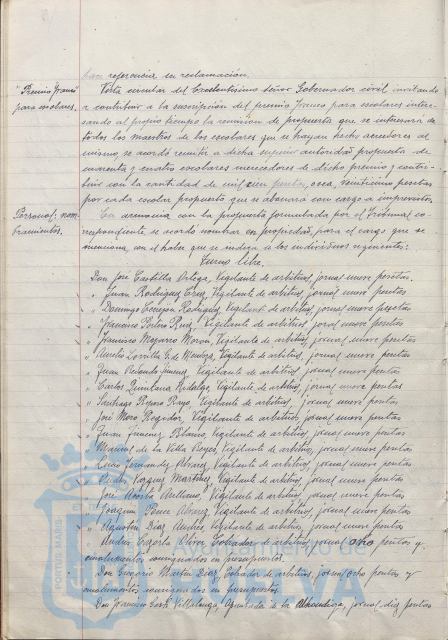 hacen referencia su reclamación.
"Premio Franco Vista circular del Excelentísimo Señor Gobernador civil invitando
para escolares. a contribuir a la suscripción del premio Franco para escolares intere-
sando al propio tiempo la remisión de propuesta que se interesará de
todos los maestros de los escolares que se hayan hecho acreedores al
mismo, se acordó remitir a dicha autoridad propuesta de
cuarenta y cuatro escolares merecedores de dicho premio y contri-
buir con la cantidad de mil cien pesetas, o sea, veinticinco pesetas
por cada escolar propuesto que se abonará con cargo a imprevistos.
Personal; nom- En armonía con la propuesta formulada por el Tribunal co-
bramientos. rrespondiente se acordó nombrar en propiedad, para el cargo que se
menciona, con el haber que se indica a los individuos siguientes:
Turno libre.
Don José Castilla Ortega, Vigilante de arbitrios, jornal nueve pesetas.
" Juan Rodríguez Cruz, Vigilante de arbitrios, jornal nueve pesetas
" Domingo Rodríguez, Vigilante de arbitrios, jornal nueve pesetas
" Francisco Ruiz, Vigilante de arbitrios, jornal nueve pesetas
" Francisco Navarro Morón, Vigilante de arbitrios, jornal nueve pesetas
" Aurelio Zorrilla G. de Mendoza, Vigilante de arbitrios, jornal nueve pesetas
" Juan Jiménez, Vigilante de arbitrios, jornal nueve pesetas
" Carlos Quintana Hidalgo, Vigilante de arbitrios, jornal nueve pesetas
" Santiago Rojo, Vigilante de arbitrios, jornal nueve pesetas
" José Moro Regidor, Vigilante de arbitrios, jornal nueve pesetas
" Juan Jiménez Blanco, Vigilante de arbitrios, jornal nueve pesetas
" de la Villa Reyes, Vigilante de arbitrios, jornal nueve pesetas
" Fernández Álvarez, Vigilante de arbitrios, jornal nueve pesetas
" Vázquez Martínez, Vigilante de arbitrios, jornal nueve pesetas
" José Acosta Arellano, Vigilante de arbitrios, jornal nueve pesetas
" Joaquín Ponce Álvarez, Vigilante de arbitrios, jornal nueve pesetas
" Agustín Díaz, Vigilante de arbitrios, jornal nueve pesetas
" Andrés Oliva, Cobrador de arbitrios, jornal ocho pesetas y
emolumentos consignados en presupuestos.
" Don Gregorio Martín Díaz, Cobrador de arbitrios, jornal ocho pesetas y
emolumentos consignados en presupuestos
Don Francisco Villalonga, de la Alhóndiga, jornal diez pesetas
Ayuntamiento de
PORTUS MARIS